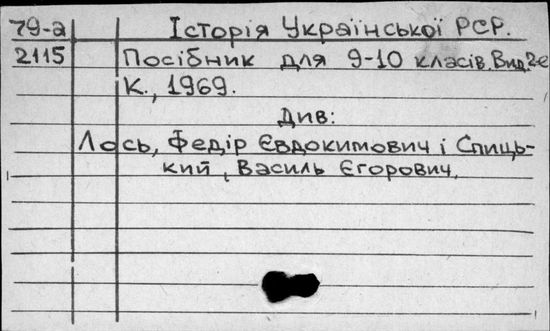 79-а Історія Української РСР.
2115 Посібник для 9-10 класів. Вид. 2-е
К., 1969.
Див:
Лось, Федір Євдокимович і Спиць-
кий, Василь Єгорович.